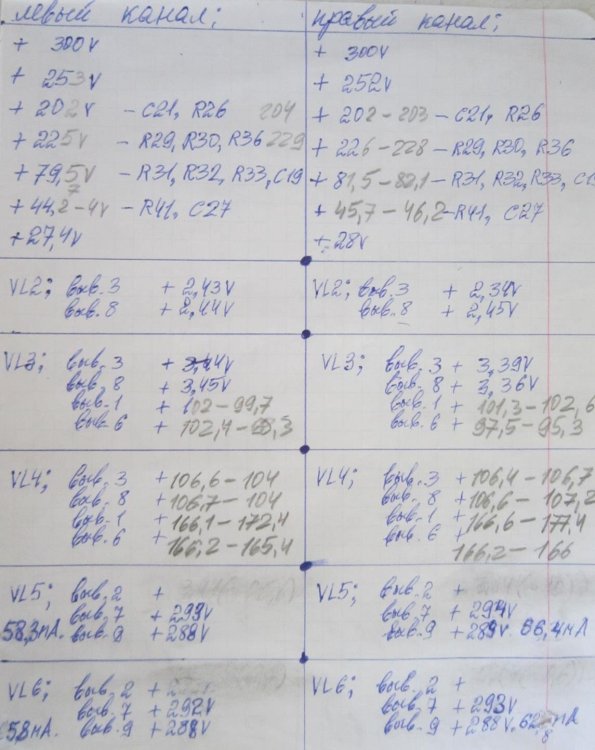 левый канал;
+ 300V
+ 253V
+ 202V – C21, R26 204
+ 225V – R29, R30, R36 229
+ 79,5V – R31, R32, R33, C19
7
+ 44,2 – 4V – R41, C27
+ 27,4V
правый канал;
+ 300V
+ 252V
+ 202 – 203 – C21, R26
+ 226 – 228 – R29, R30, R36
+ 81,5 – 82,1 – R31, R32, R33, C19
+ 45,7 – 46,2 – R41, C27
+ 28V
VL2; выв. 3 + 2,43V
выв. 8 + 2,44V
VL2; выв. 3 + 2,34V
выв. 8 + 2,45V
VL3; выв. 3 + 3,44V
выв. 8 + 3,45V
выв. 1 + 102 – 99,7
выв. 6 + 102,4 –
VL3; выв. 3 + 3,39V
выв. 8 + 3,36V
выв. 1 + 101,3 – 102,6
выв. 6 + 97,5 – 95,3
VL4; выв. 3 + 106,6 – 104
выв. 8 + 106,7 – 104
выв. 1 + 166,1 – 172,4
выв. 6 + 166,2 – 165,4
VL4; выв. 3 + 106,4 – 106,7
выв. 8 + 106,6 – 107,2
выв. 1 + 166,6 – 177,4
выв. 6 + 166,2 – 166
VL5; выв. 2 +
выв. 7 + 293V
58,3мА. выв. 9 + 288V
VL5; выв. 2 +
выв. 7 + 294V
выв. 9 + 289V. 56,4мА
VL6; выв. 2 +
выв. 7 + 292V
58мА выв. 9 + 288V
VL6; выв. 2 +
выв. 7 + 293V
выв. 9 + 288V. мА
8